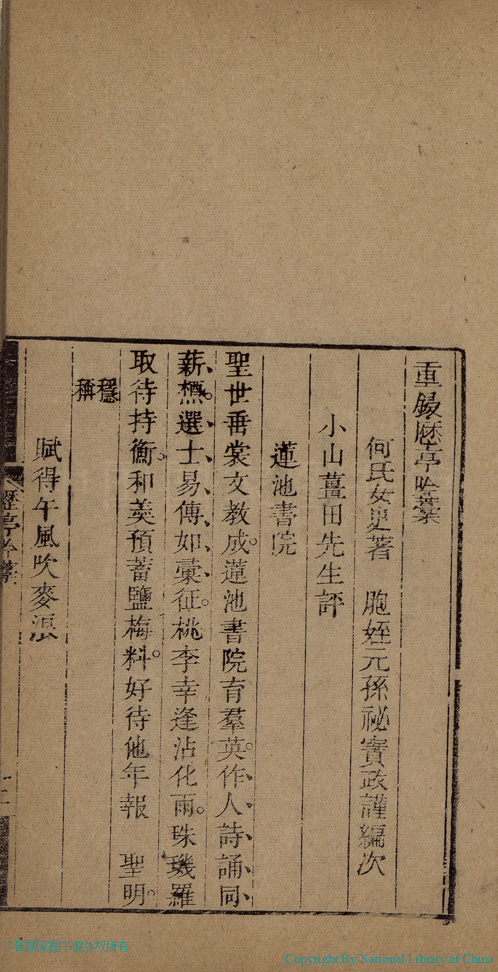 重鋟歷亭吟藁
何氏女史著 胞姪元孫祕實政謹編次
小山薑田先生評
蓮池書院
聖世垂裳文教成。蓮池書院育羣英。作人詩誦同
薪槱。選士易傳如彙征。桃李幸逢沾化雨。珠璣羅
取待持衡。和羹預蓄鹽梅料。好待他年報 聖明。
穩稱
賦得午風吹麥浪
歷亭吟藁
中国国家图书馆版权所有
Copyright By National Library of China